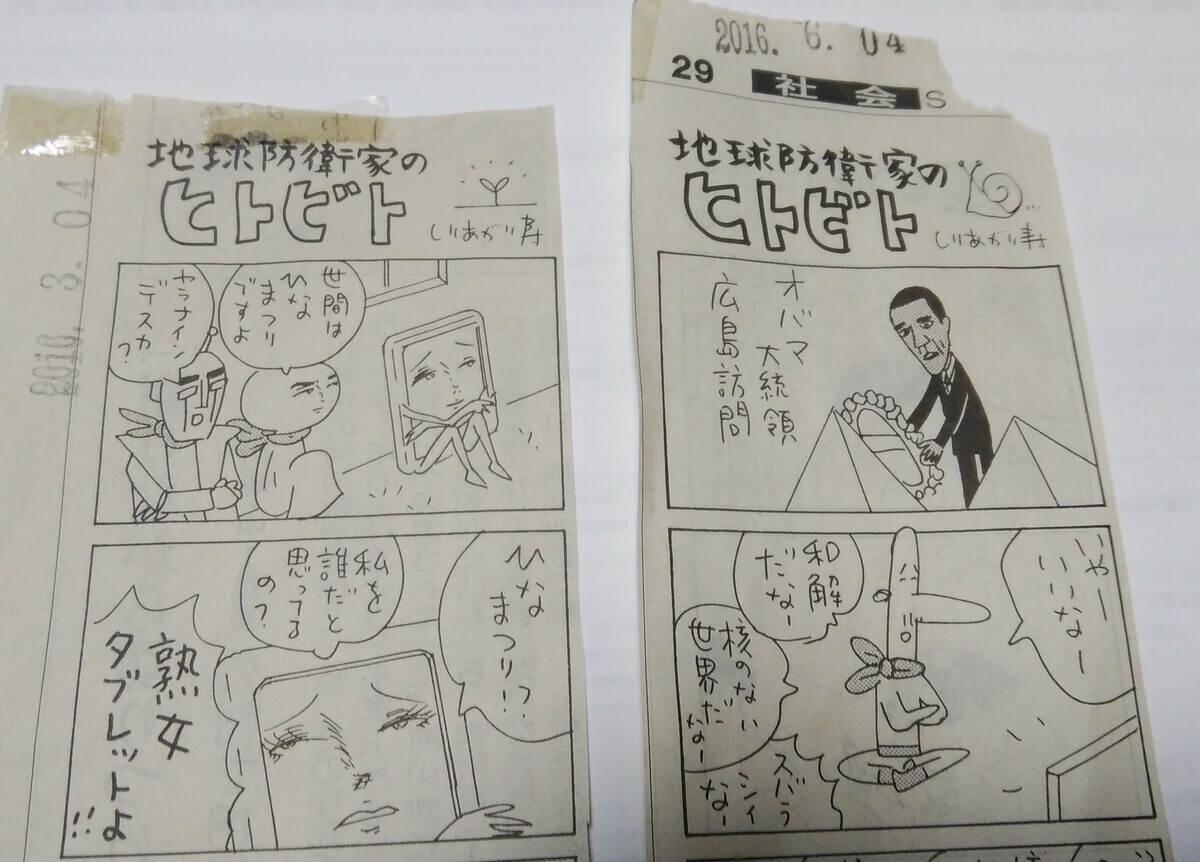 地球防衛家の
ヒトビト
しりあがり寿
世間は
ひな
まつり
ですよ
ヤラナイン
デスカ
?
ひな
まつり!?
私を
誰だと
思ってる
の?
熟女
タブレットよ
!!
2016. 3. 04
2016. 6. 04
29
社会
S
地球防衛家の
ヒトビト
しりあがり寿
オバマ
大統領
広島訪問
いやー
いいなー
和解
だなー
核のない
世界だ
なー
スバラ
シイ
なー